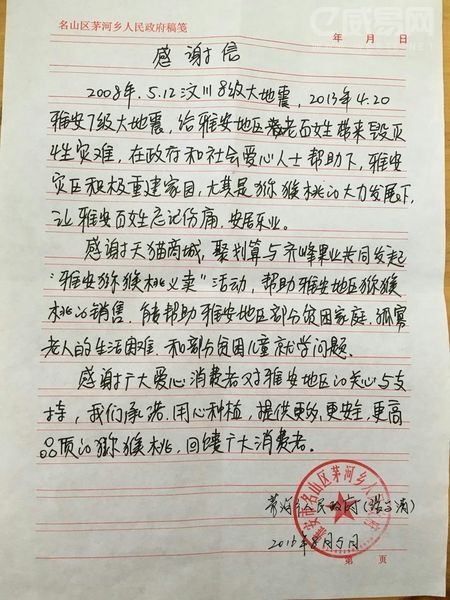 威易网
名山区茅河乡人民政府稿笺
年 月 日
感谢信
2008年.5.12汶川8级大地震,2013年4.20
雅安7级大地震,给雅安地区老百姓带来毁灭
性灾难,在政府和社会爱心人士帮助下,雅安
灾区积极重建家园,尤其是猕猴桃的大力发展下,
让雅安百姓忘记伤痛,安居乐业。
感谢天猫商城,聚划算与齐峰果业共同发起
“雅安猕猴桃义卖”活动,帮助雅安地区猕猴
桃的销售,能帮助雅安地区部分贫困家庭、孤寡
老人的生活困难,和部分贫困儿童就学问题.
感谢广大爱心消费者对雅安地区的关心与支
持,我们承诺.用心种植,提供更多,更安全,更高
品质的猕猴桃,回馈广大消费者。
茅河乡人民政府(
雅安市名山区茅河乡人民政府
第 页